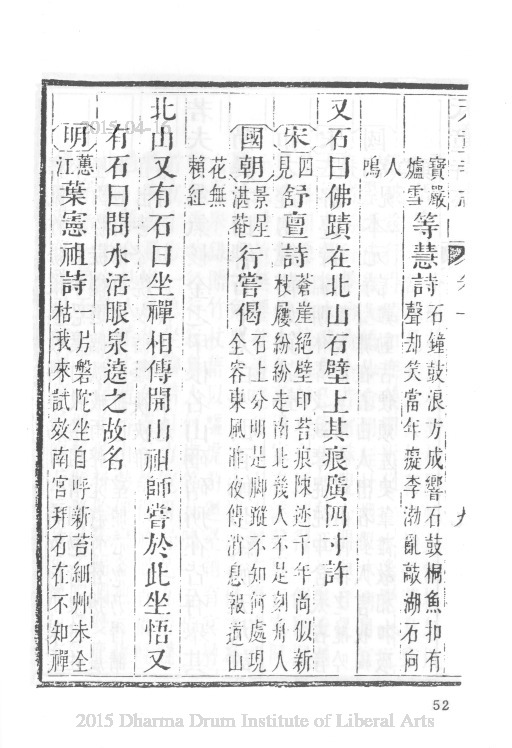 寶嚴
爐雪
等慧詩
石鐘鼓浪方成響石鼓桐魚扣有
聲却笑當年癡李渤亂敲湖石向
人
鳴
又石曰佛蹟在北山石壁上其痕廣四寸許
宋
四
見
舒亶詩
蒼崖絕壁印苔痕陳迹千年尚似新
杖屨紛紛走南北幾人不是刻舟人
國朝
景星
湛菴
行嘗偈
石上分明是脚蹤不知何處現
全容東風昨夜傳消息報道山
花無
賴紅
北山又有石曰坐禪相傳開山祖師嘗於此坐悟又
有石曰問水活眼泉遶之故名
明
蕙
江
葉憲祖詩
一片磐陀坐自呼新苔細艸未全
枯我來試效南宮拜石在不知禪
2015-04-10
52
2015 Dharma Drum Institute of Liberal Arts